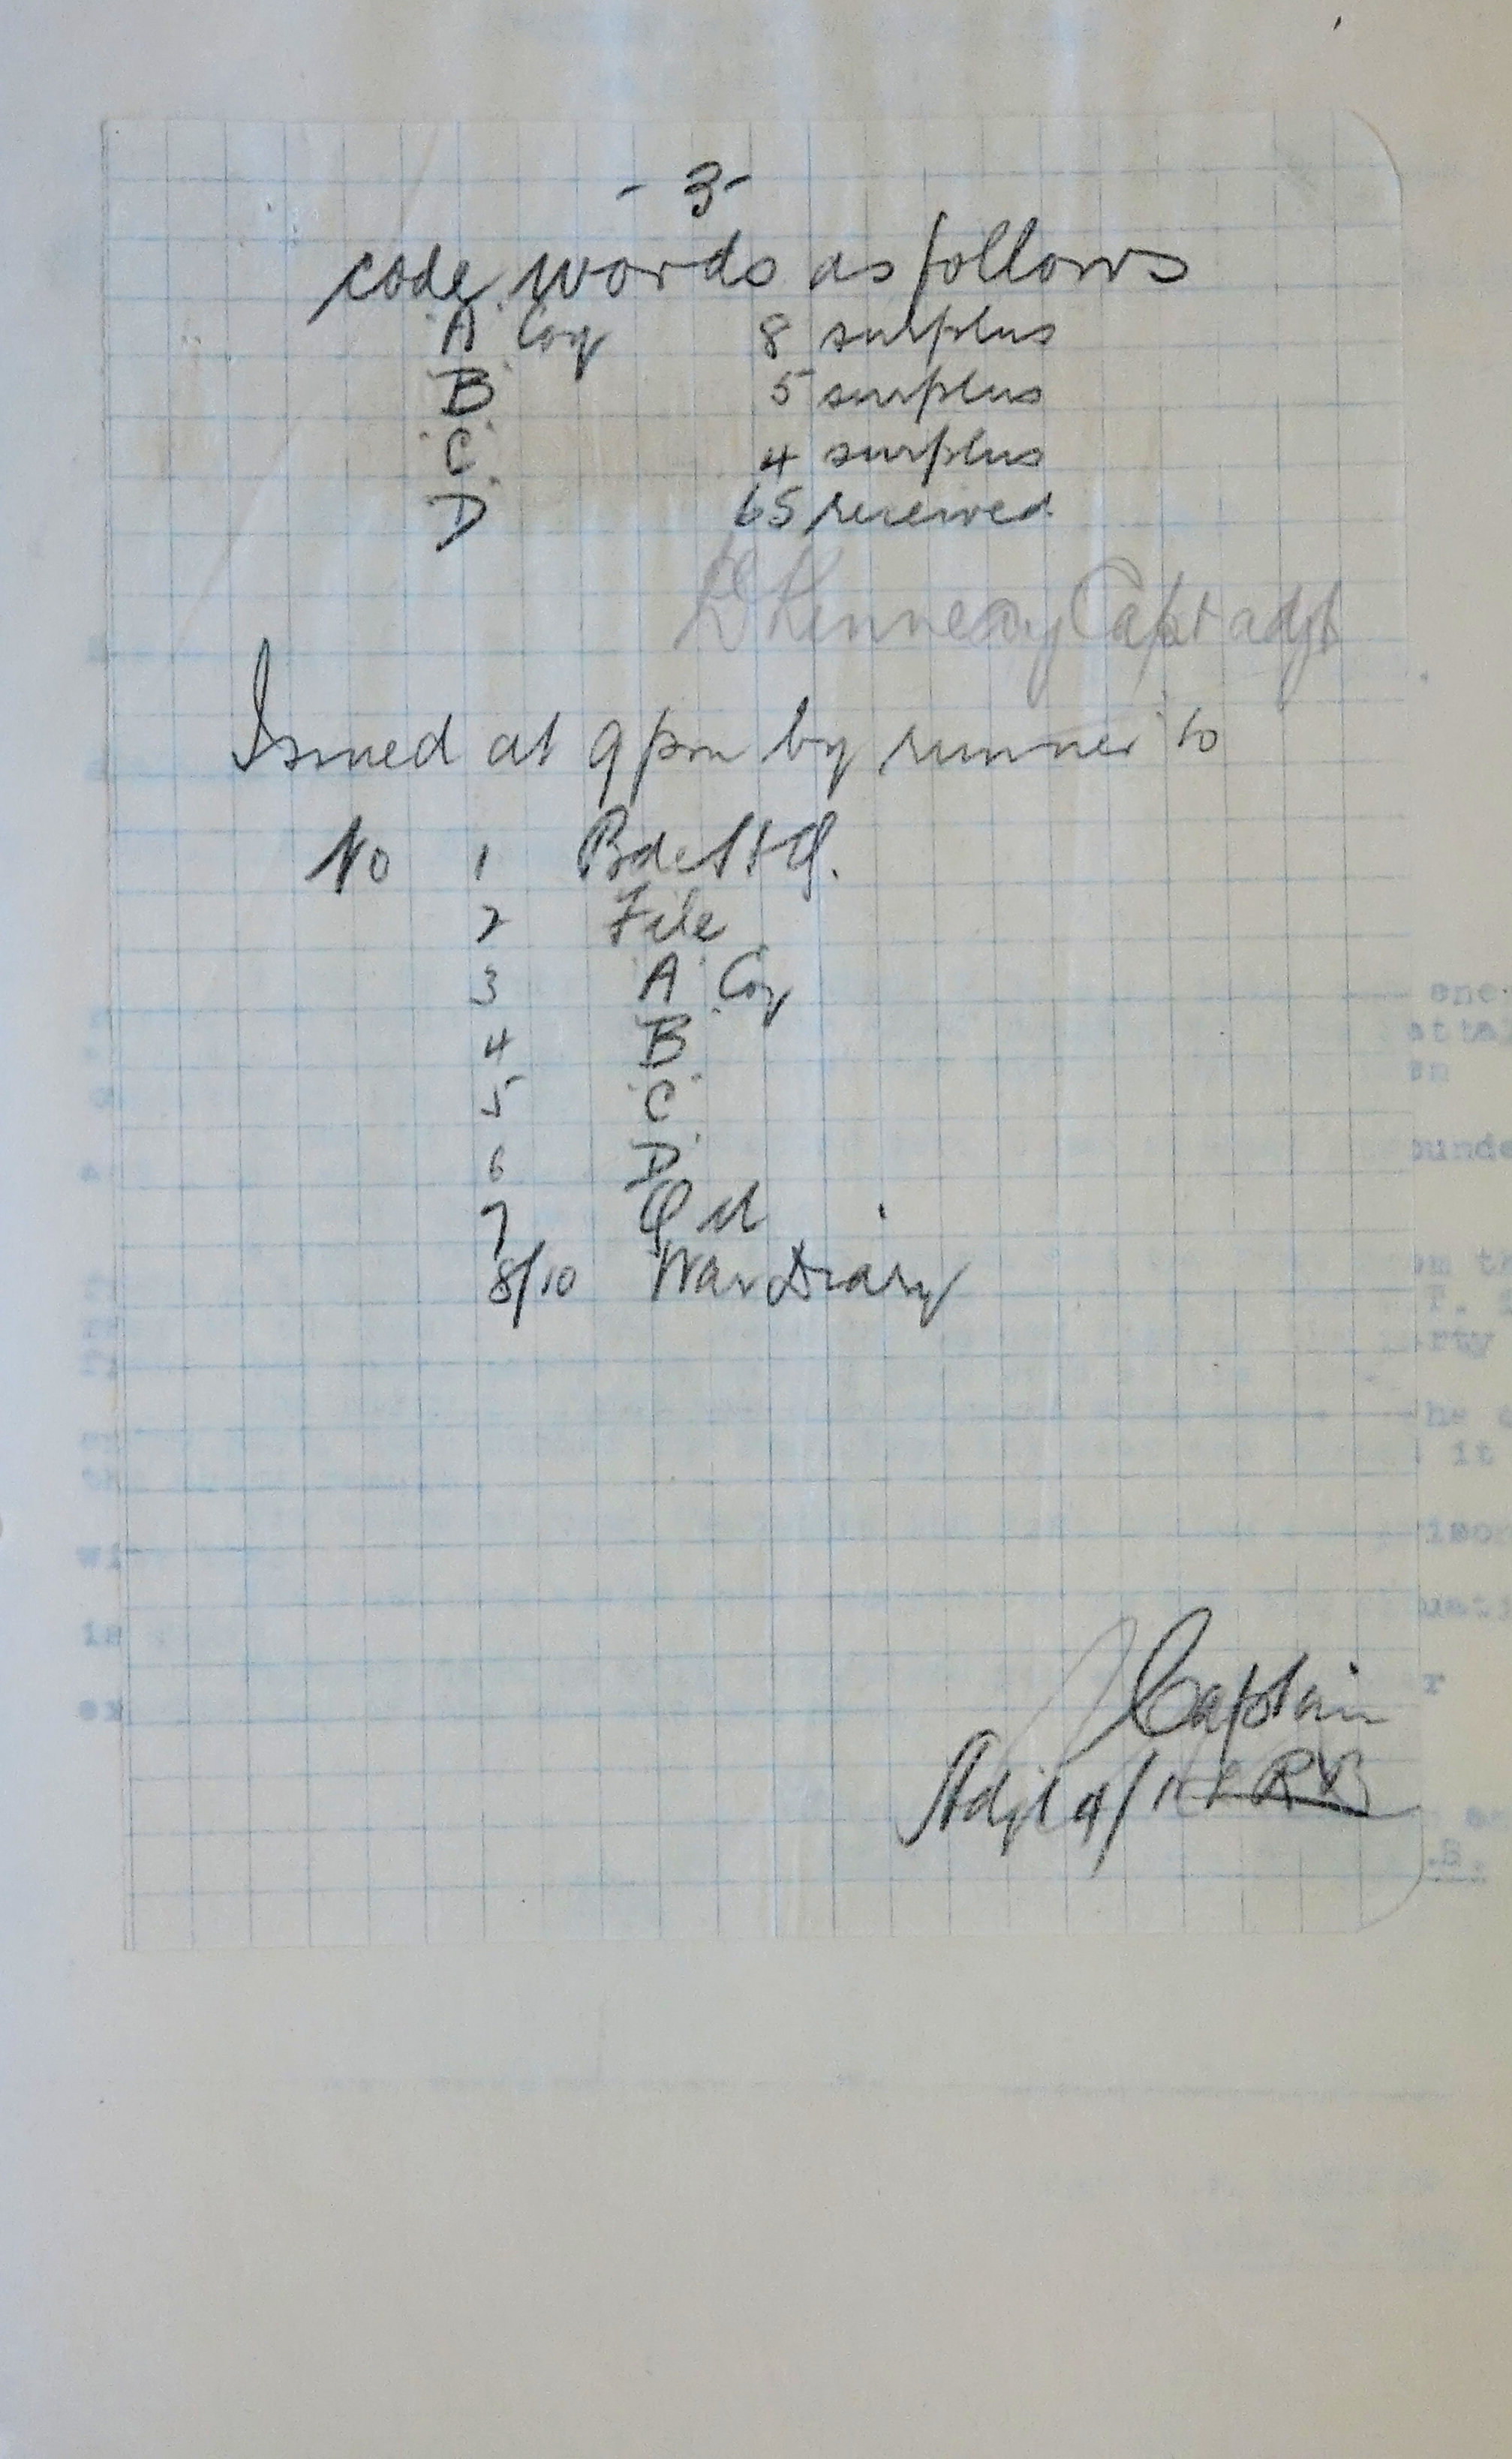 - 3 -
code words as follows
"A" Coy 8 surplus
"B" 5 surplus
"C" 4 surplus
"D" 65 received
Kennedy Capt adjt
Issued at 9 pm by runner to
No 1 Bde H.Q.
2 File
3 "A" Coy
4 "B"
5 "C"
6 "D"
7 QM
8/10 War Diary
Captain
Adjt
ene
attal
en
ounde
om tr
T.
rty
he
it
ison
usti
r
wi
is
ex
.S.